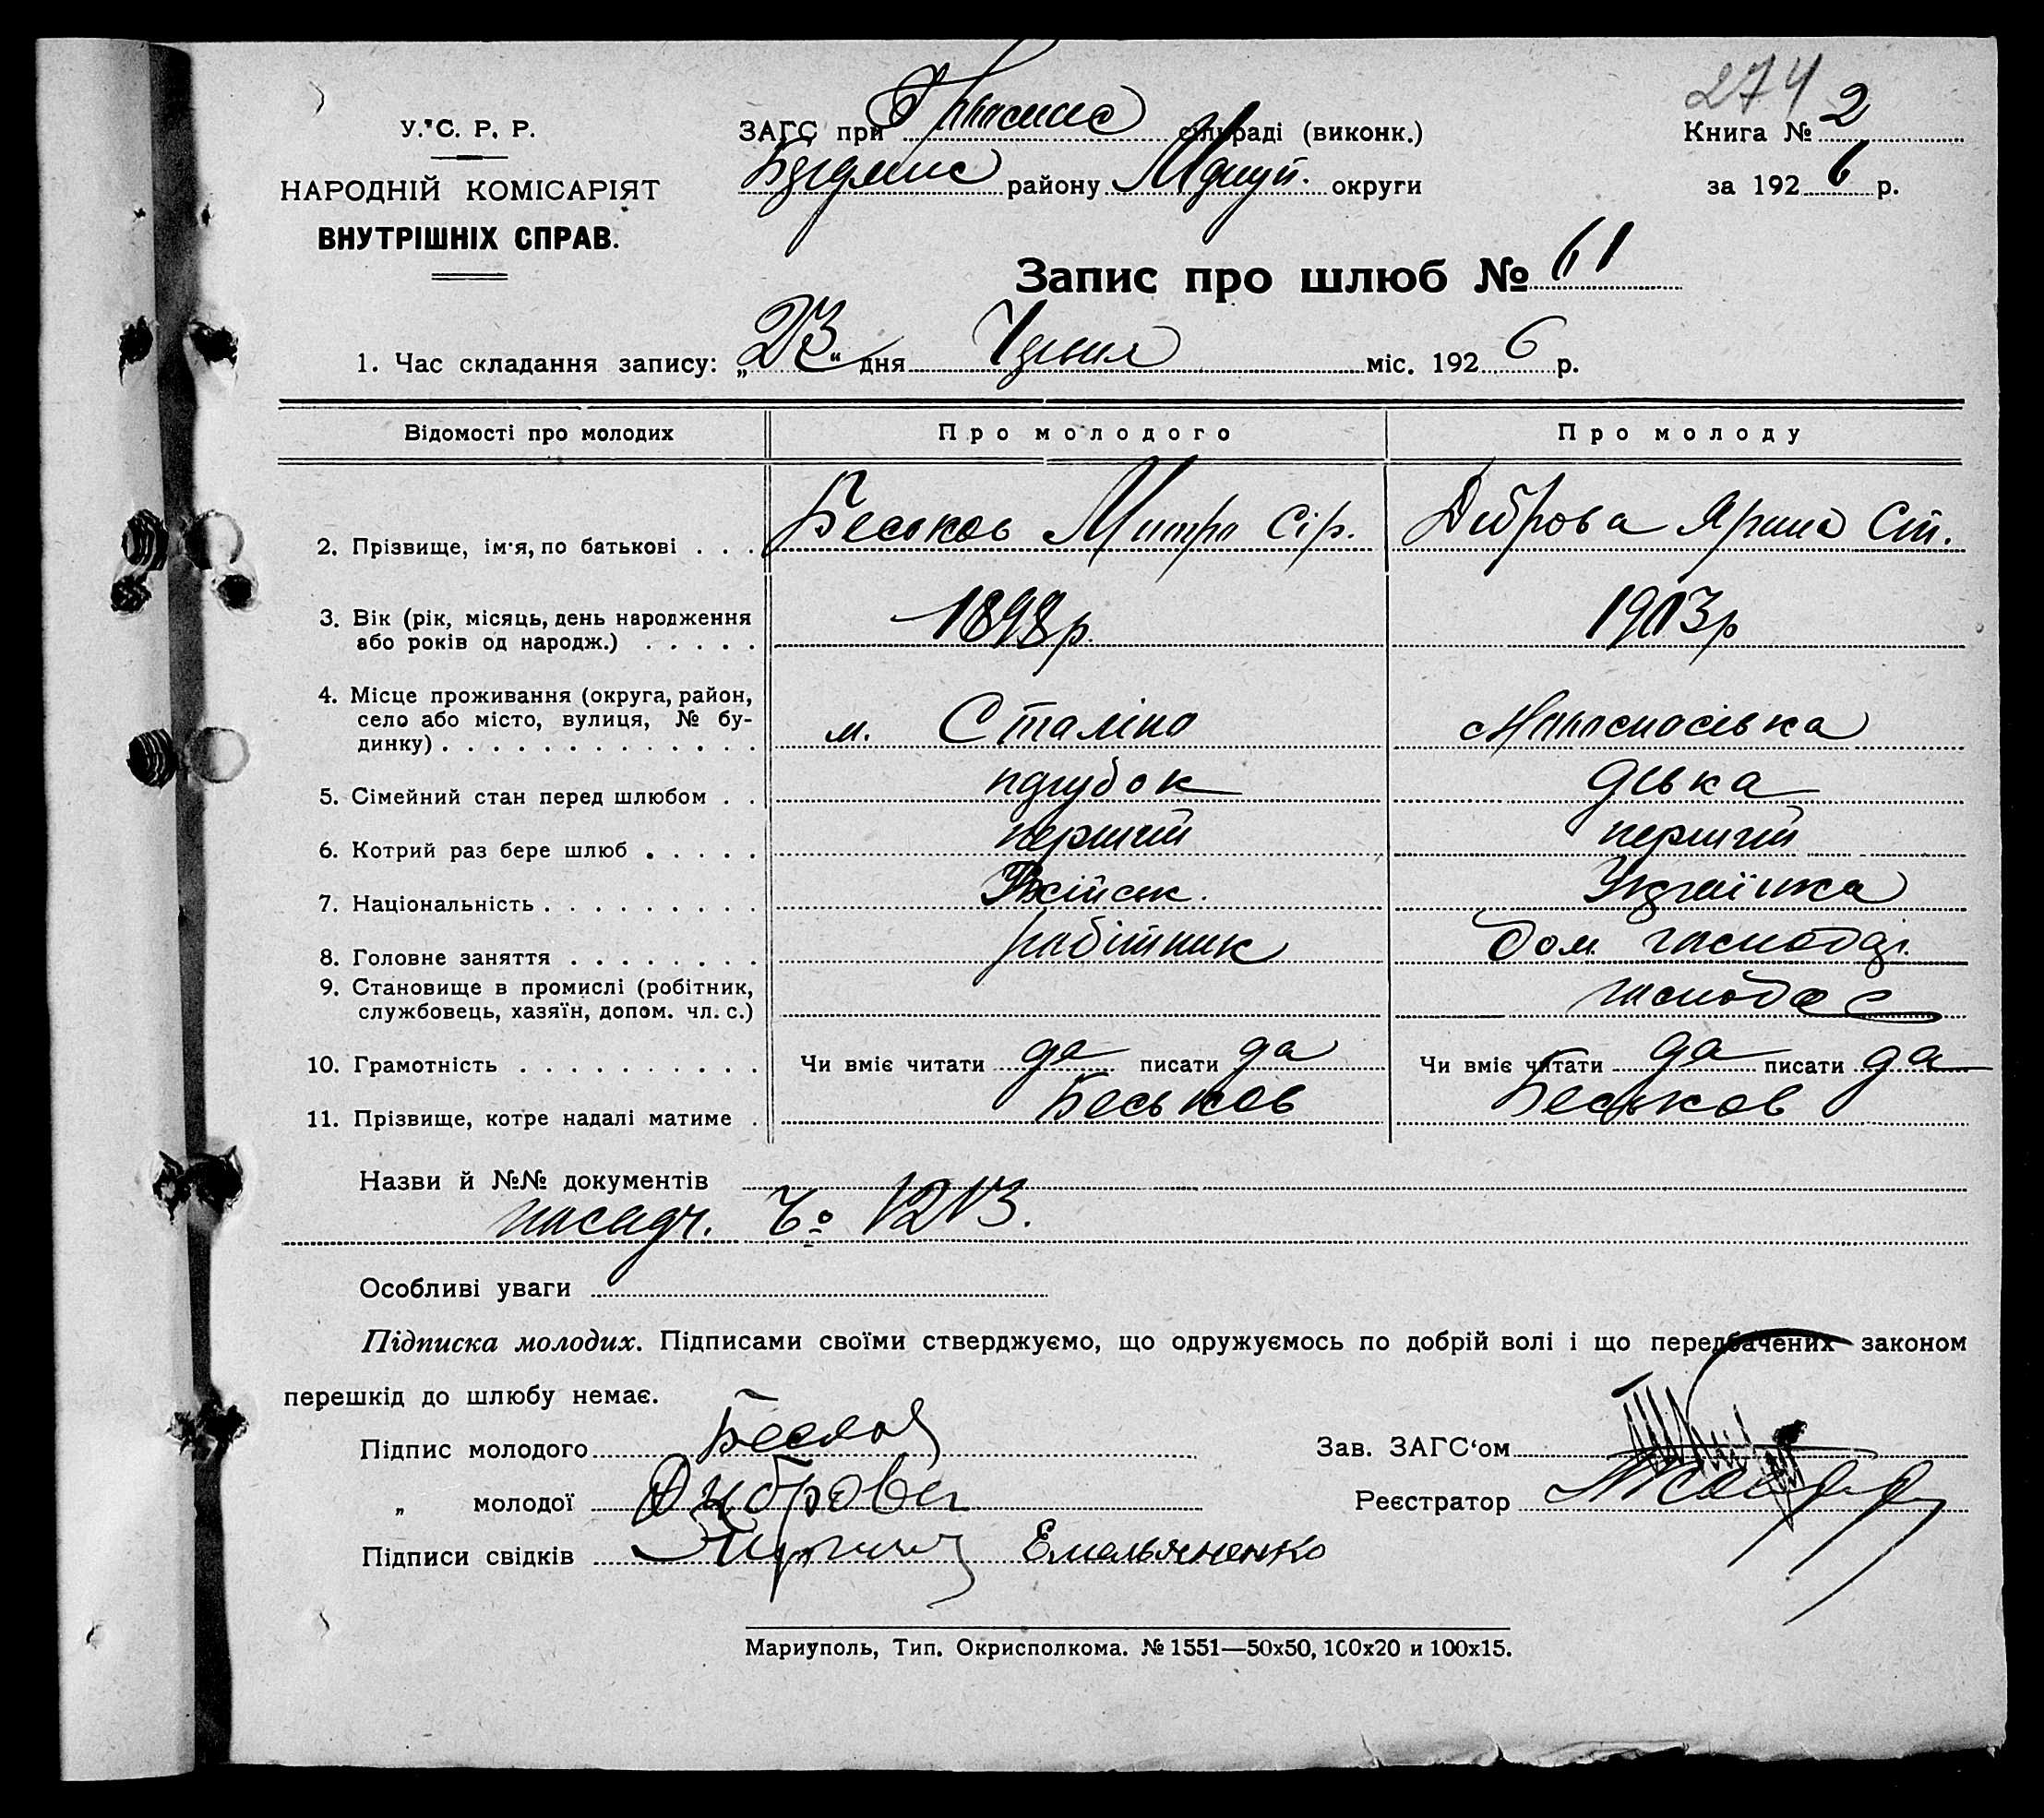 274
У. С. Р. Р.
НАРОДНІЙ КОМІСАРІЯТ
ВНУТРІШНІХ СПРАВ.
ЗАГС при сільраді (виконк.)
району округи
Книга № 2
за 1926 р.
Запис про шлюб № 61
1. Час складання запису: „23“ дня міс. 1926 р.
Відомості про молодих Про молодого Про молоду
2. Прізвище, ім'я, по батькові . . . Беськов Митро Сір. Діброва Ярина Ст.
3. Вік (рік, місяць, день народження
або років од народж.) . . . . . 1898р. 1903р
4. Місце проживання (округа, район,
село або місто, вулиця, № бу-
динку) . . . . . . . . . . . . . м. Сталіно
5. Сімейний стан перед шлюбом . . парубок дівка
6. Котрий раз бере шлюб . . . . . перший перший
7. Національність . . . . . . . . . Українка
8. Головне заняття . . . . . . . . робітник Дом. господар.
9. Становище в промислі (робітник,
службовець, хазяїн, допом. чл. с.)
10. Грамотність . . . . . . . . . . Чи вміє читати да писати да Чи вміє читати да писати да
11. Прізвище, котре надалі матиме . Беськов Беськов
Назви й №№ документів
посвідч. 1213.
Особливі уваги
Підписка молодих. Підписами своїми стверджуємо, що одружуємось по добрій волі і що передбачених законом
перешкід до шлюбу немає.
Підпис молодого Беськов Зав. ЗАГС‘ом
„ молодої Диброва Реєстратор
Підписи свідків Емельяненко
Мариуполь, Тип. Окрисполкома. № 1551—50х50, 100х20 и 100х15.